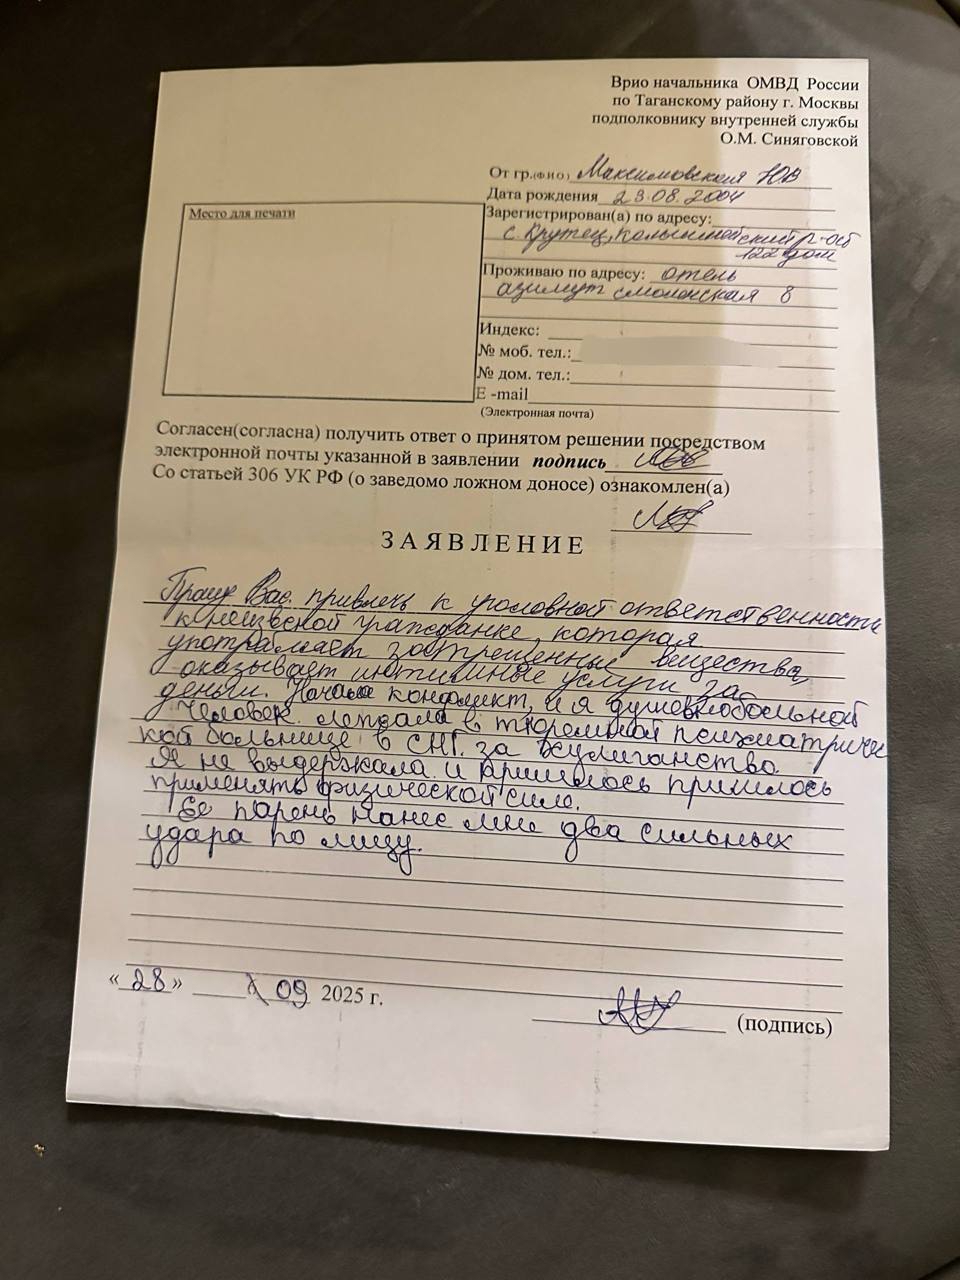 Врио начальника ОМВД России
по Таганскому району г. Москвы
подполковнику внутренней службы
О.М. Синяговской
От гр.(ФИО) Максимовская ЮВ
Дата рождения 23.08.2004
Место для печати
Зарегистрирован(а) по адресу:
с. Крутец, Колышлейский р-он
122 дом
Проживаю по адресу: отель
азимут смоленская 8
Индекс:
№ моб. тел.:
№ дом. тел.:
E -mail
(Электронная почта)
Согласен(согласна) получить ответ о принятом решении посредством
электронной почты указанной в заявлении подпись
Со статьей 306 УК РФ (о заведомо ложном доносе) ознакомлен(а)
ЗАЯВЛЕНИЕ
Прошу Вас привлечь к уголовной ответственности
которая
употребляет запрещенные вещества,
оказывает интимные услуги за
деньги. Начался конфликт, и я душевнобольной
человек. лежала в тюремной психиатричес
кой больнице в СНГ. за хулиганство.
Я не выдержала и пришлось пришлось
применять физической силе.
Ее парень нанес мне два сильных
удара по лицу.
«28» 09 2025 г.
(подпись)